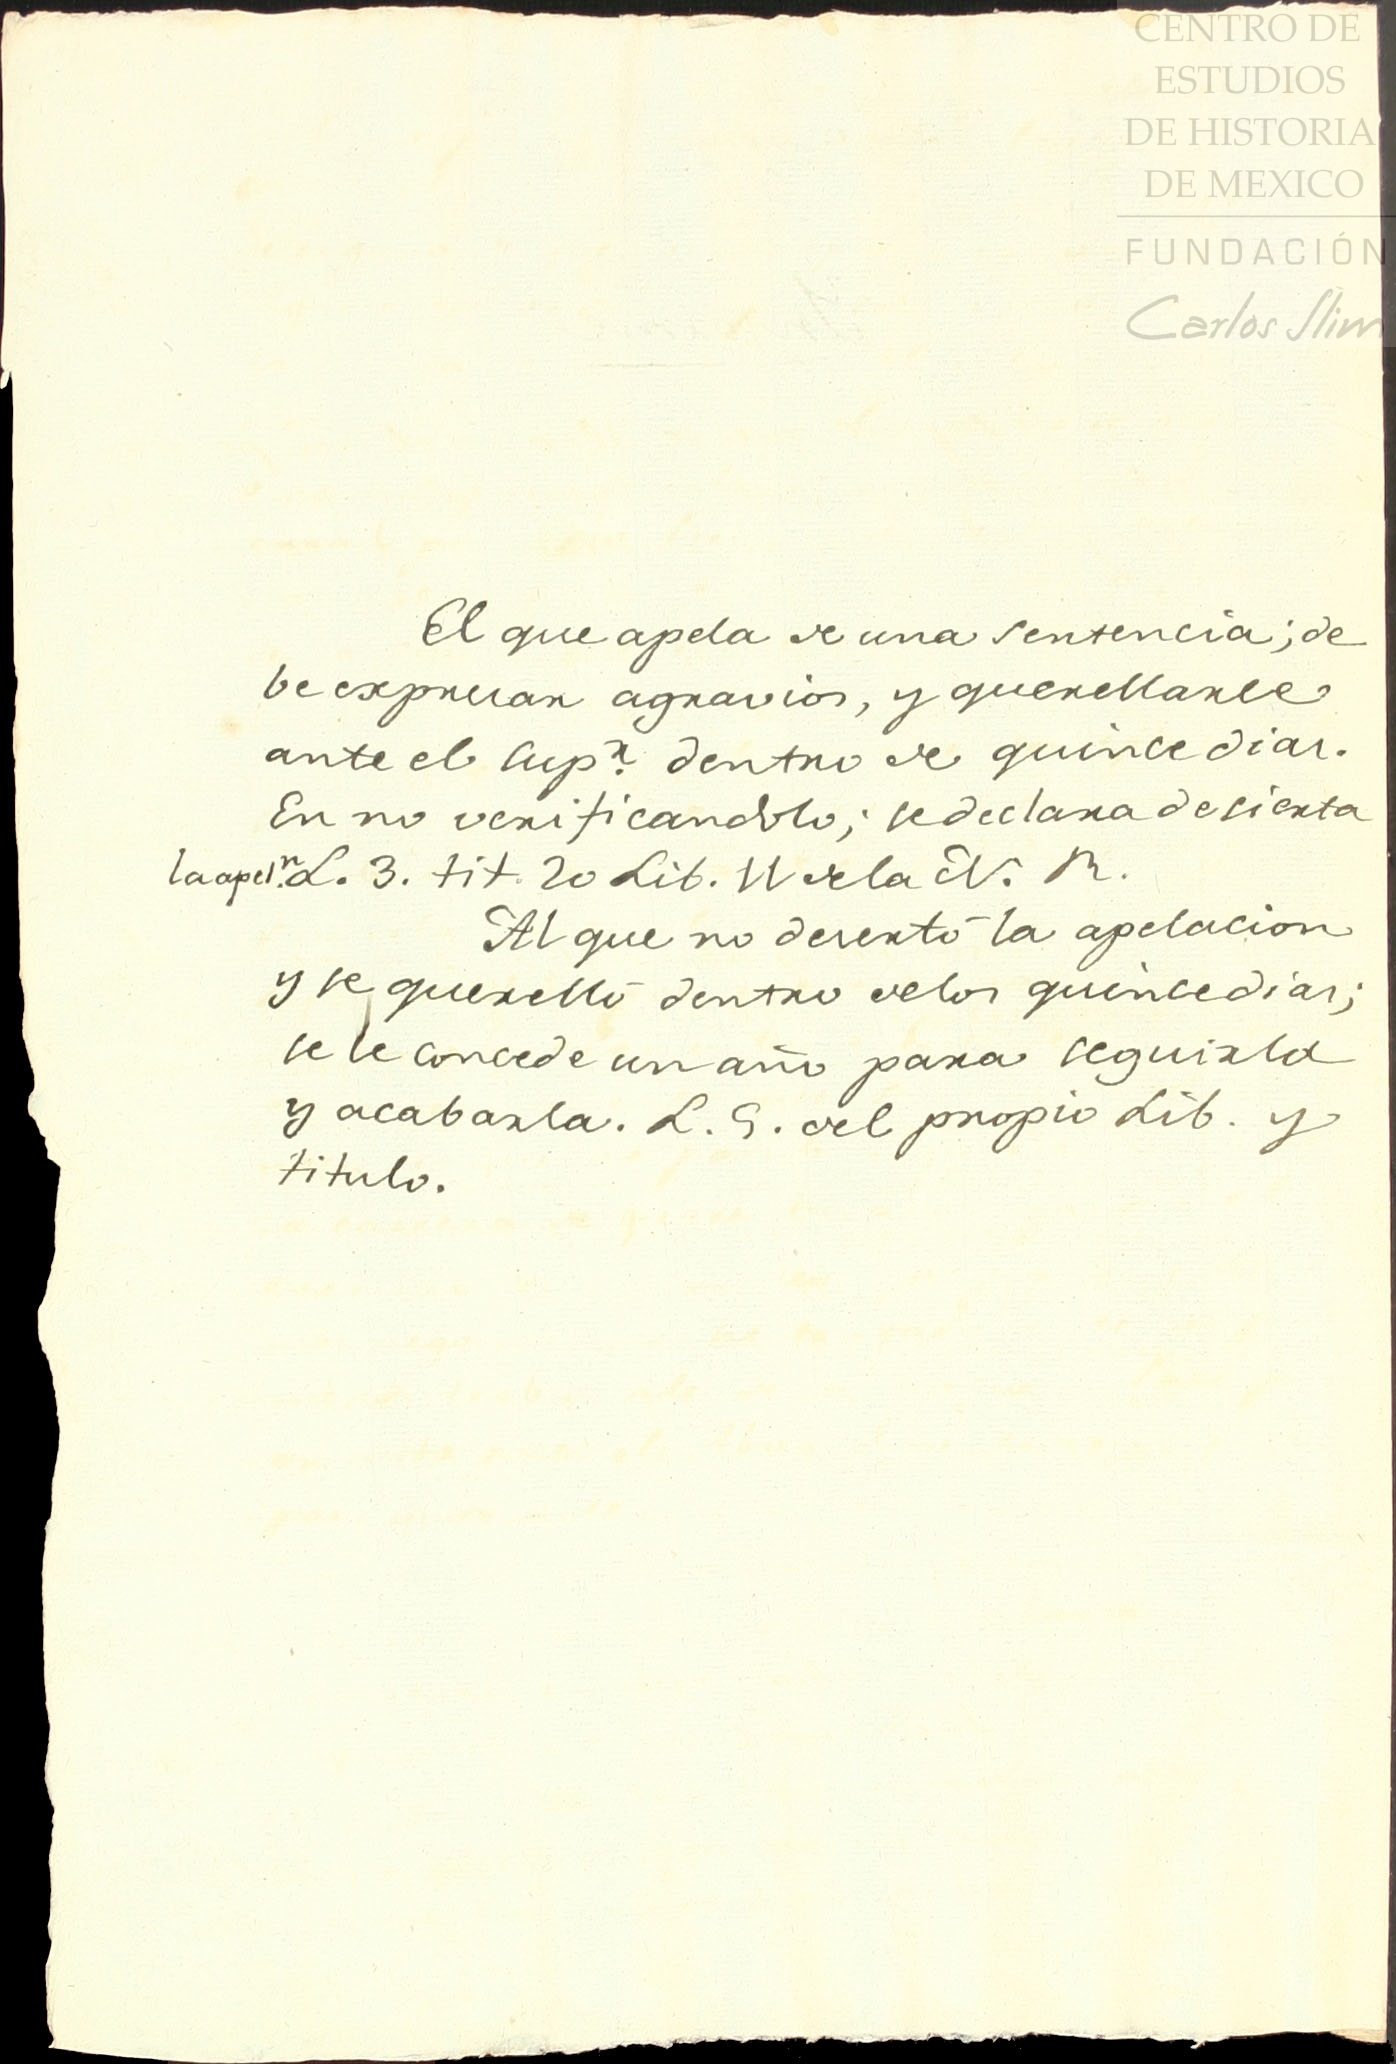 CENTRO DE
ESTUDIOS
DE HISTORIA
DE MEXICO
FUNDACIÓN
Carlos Slim
El que apela de una sentencia; de
be expresar agravios, y querellarse
ante el Sup.r dentro de quince dias.
En no verificandolo; se declara desierta
la apel.n L. 3. tit. 20 Lib. 11 de la N. R.
Al que no desertó la apelacion
y se querelló dentro de los quince dias;
se le concede un año para seguirla
y acabarla. L. 5. del propio Lib. y
titulo.